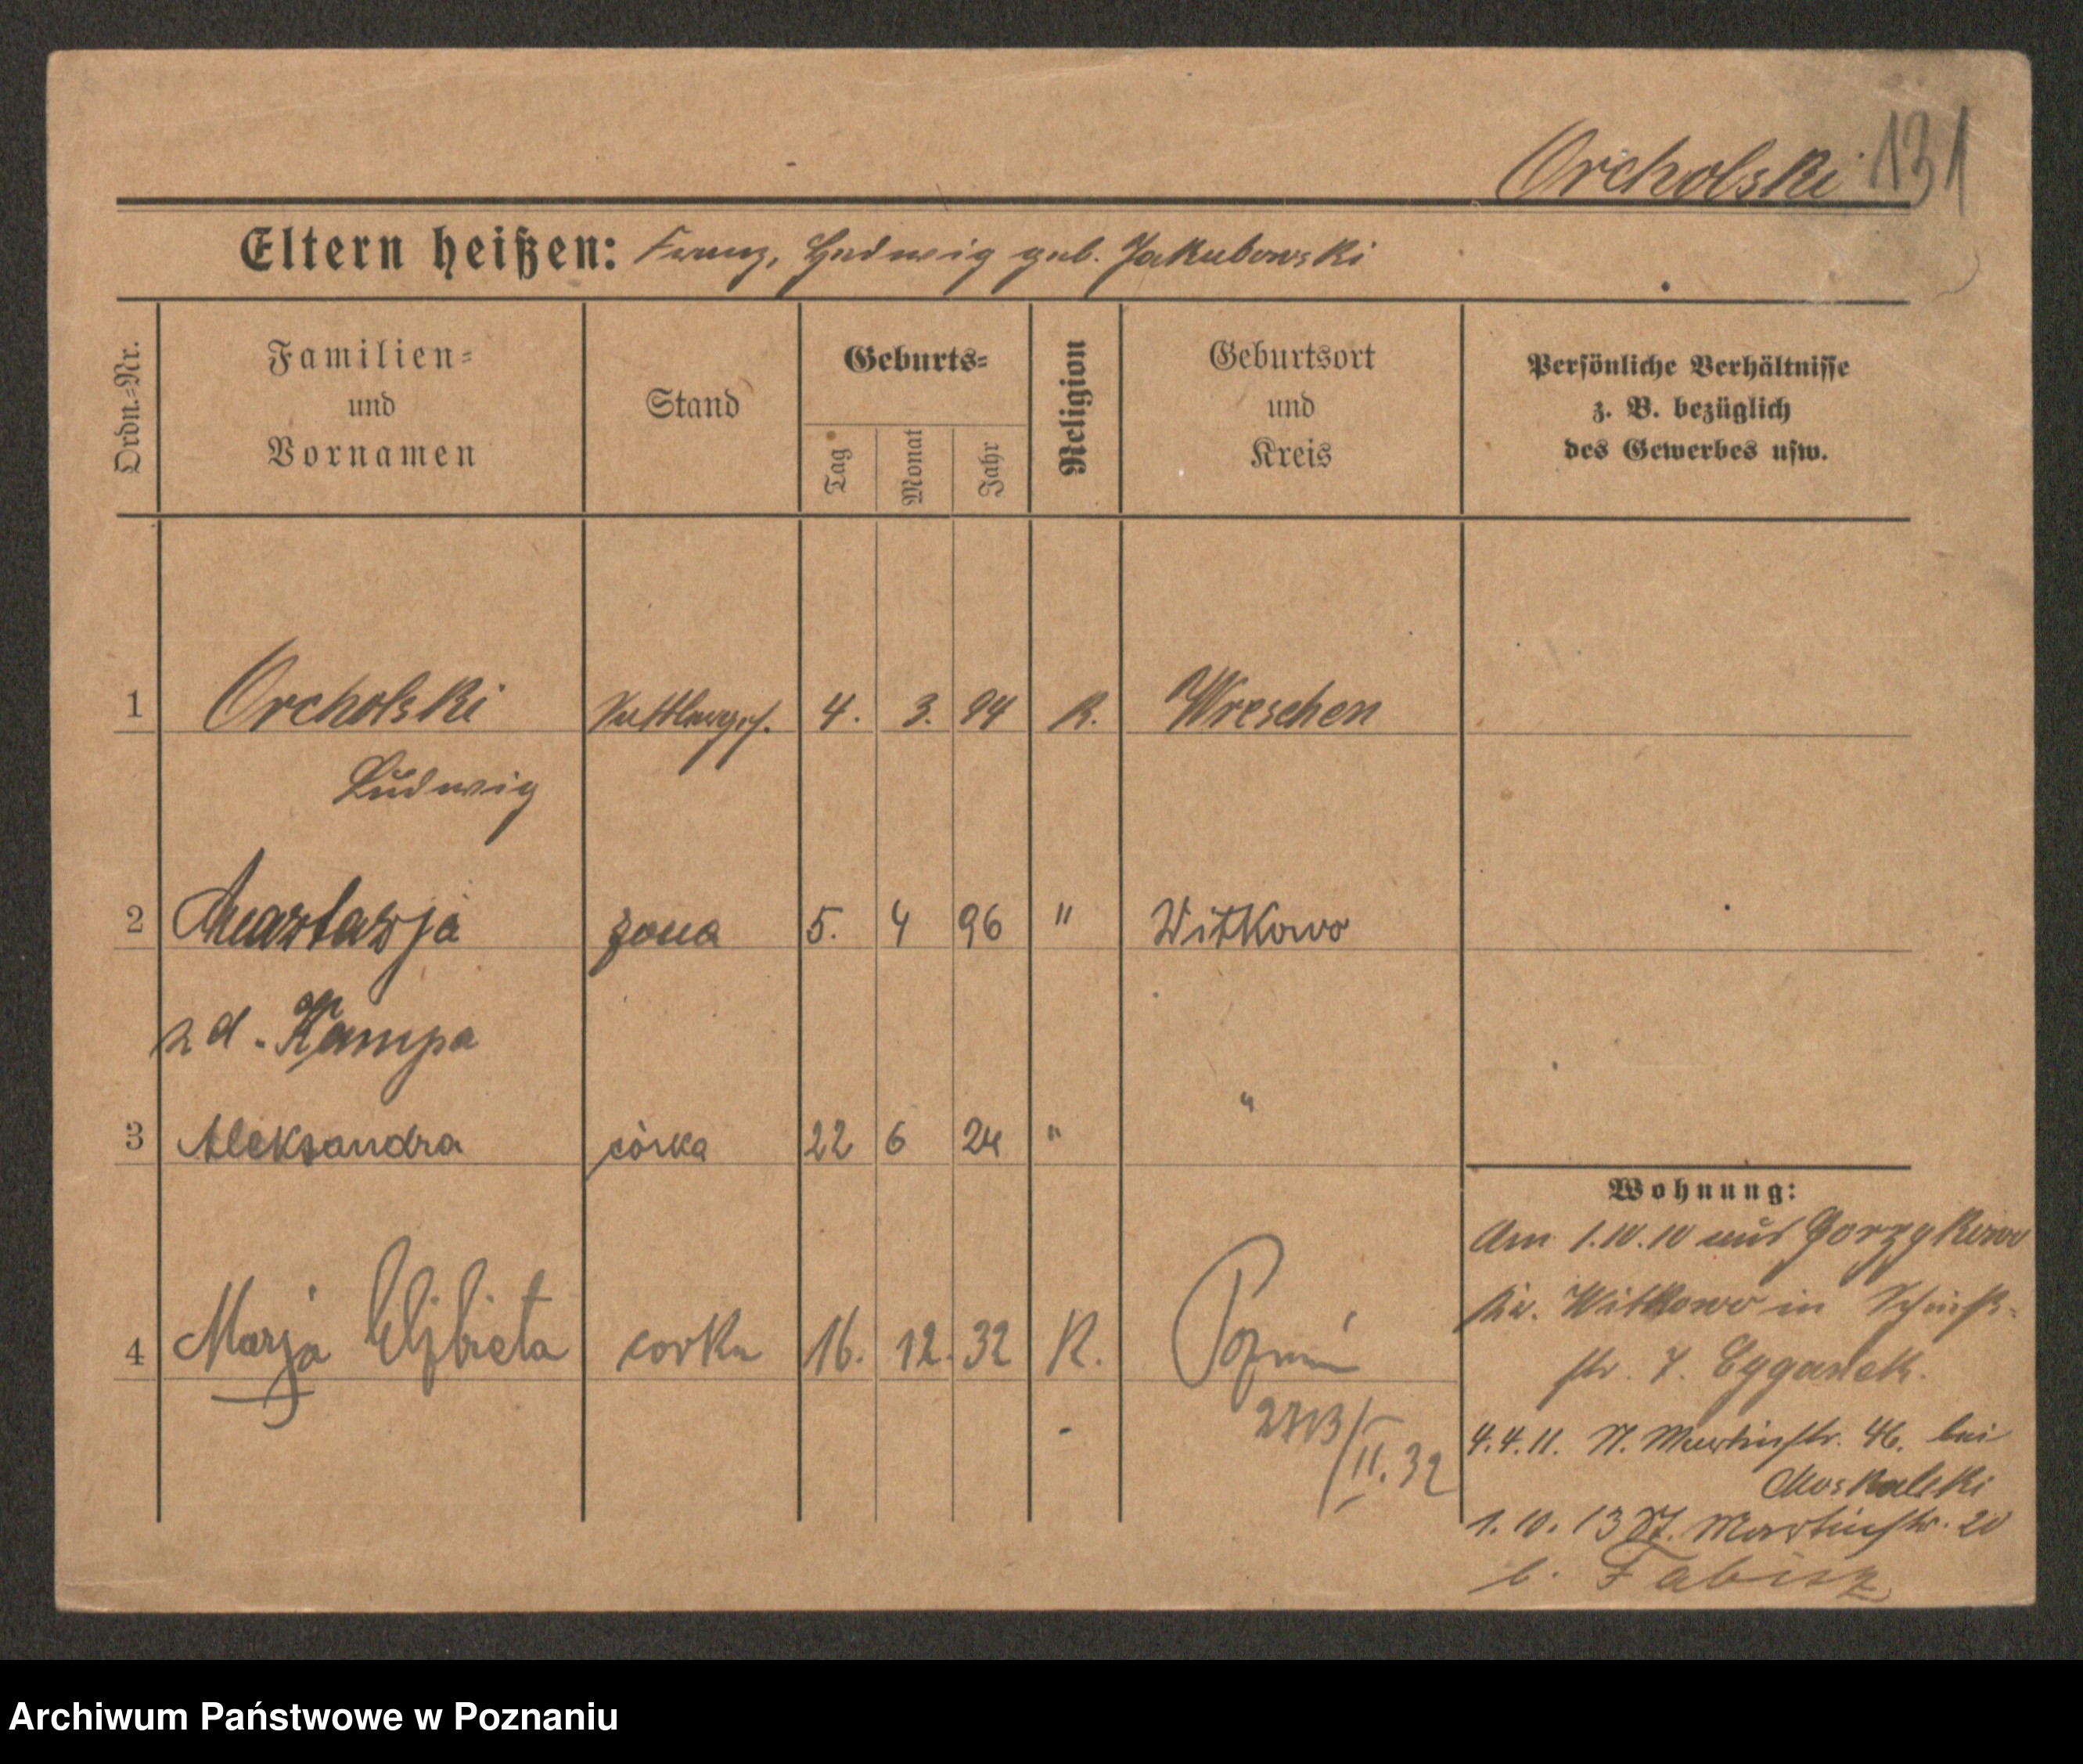 Orcholski 131
Eltern heißen: Franz, Hedwig geb. Jakubowski
Ordn.-Nr.
Familien-
und
Vornamen
Stand
Geburts-
Tag
Monat
Jahr
Religion
Geburtsort
und
Kreis
Persönliche Verhältnisse
z. B. bezüglich
des Gewerbes usw.
1 Orcholski 4. 3. 94 R. Wreschen
Ludwig
2 Anastazja żona 5. 4 96 " Witkowo
z d. Kampa
"
3 Aleksandra córka 22 6 24 "
Wohnung:
Am 1.10.10 aus Gorzykowo
Kr. Witkowo in Schieß-
4 Marja Elżbieta corka 16. 12. 32 R. Poznań
str. 7. Cyganek.
4.4.11. St. Martinstr. 46. bei
Moskaleki
II. 32
1. 10. 13 St. Martinstr. 20
b. Fabisz
Archiwum Państwowe w Poznaniu